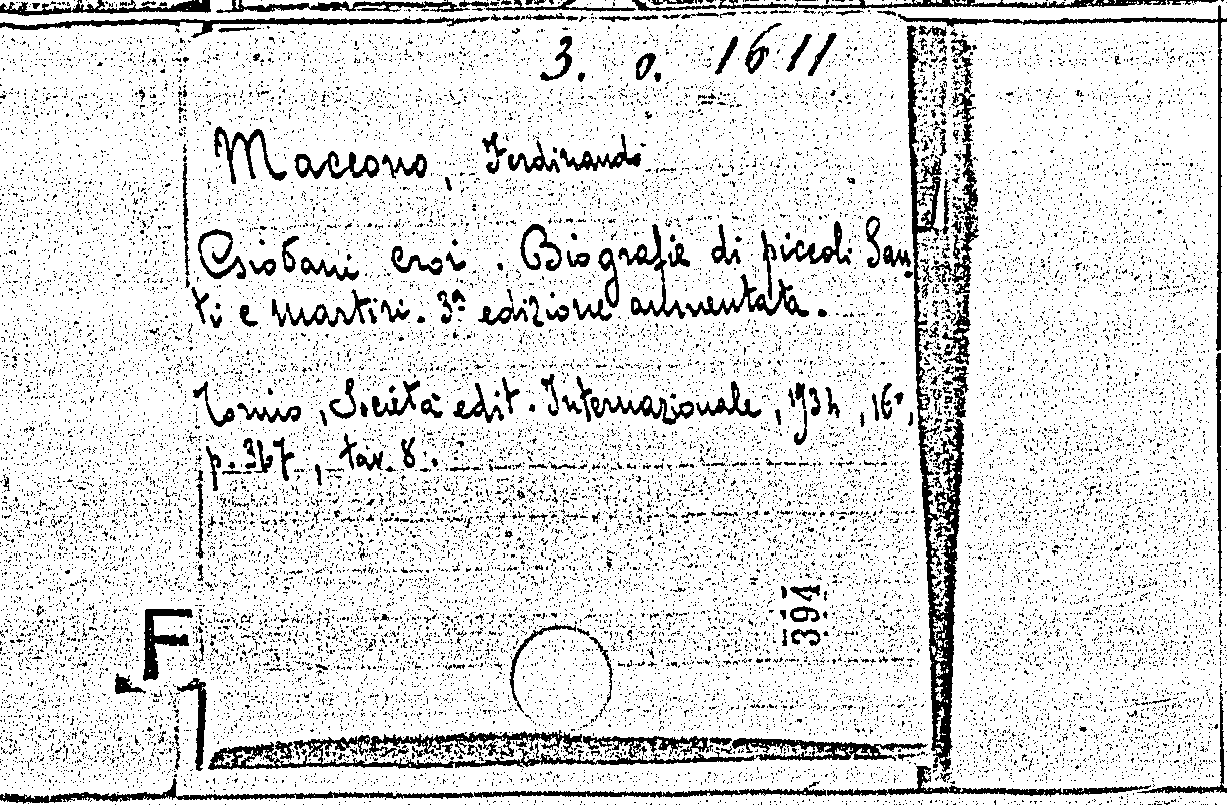 3. o. 1611
Maccono, Ferdinando
Giovani eroi. Biografie di piccoli San
ti e martiri. 3ª edizione aumentata.
Torino, Società edit. Internazionale, 1934, 16°,
p. 367, tav. 8.
394
F